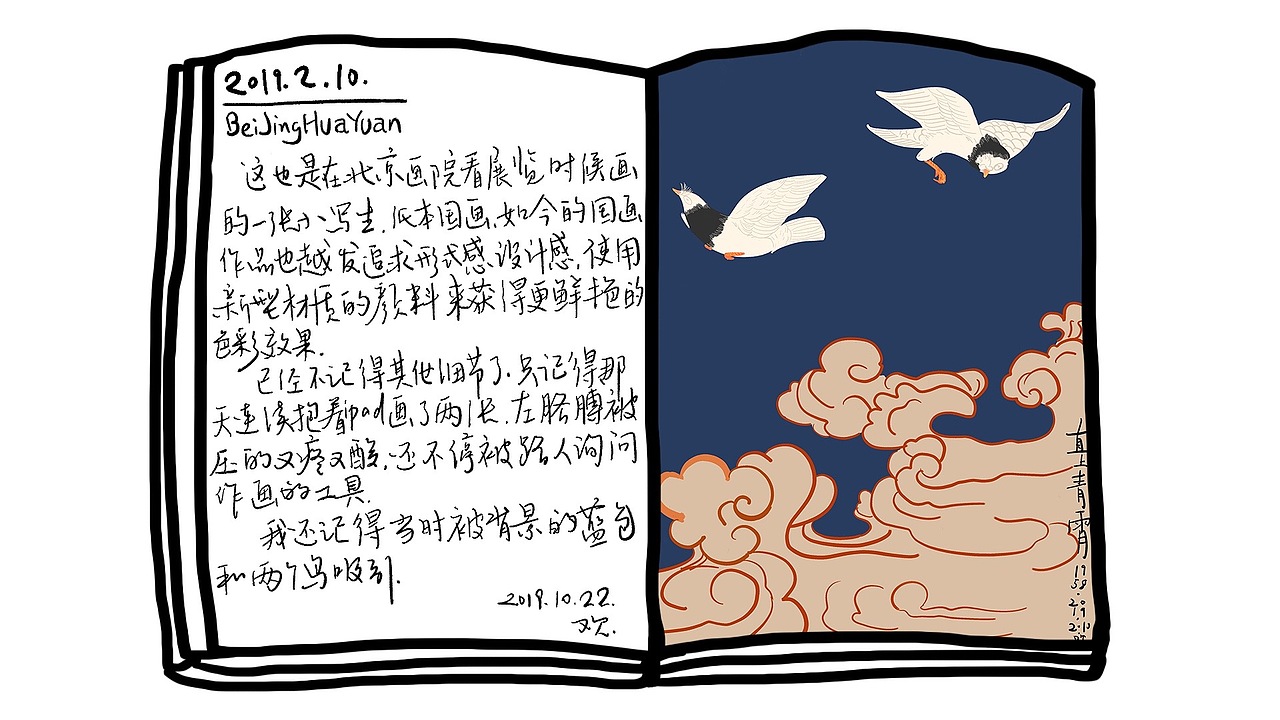 2019.2.10.
BeiJingHuaYuan
这也是在北京画院看展览时候画
的一张小写生.纸本国画.如今的国画
作品也越发追求形式感.设计感.使用
新型材质的颜料来获得更鲜艳的
色彩效果.
已经不记得其他细节了.只记得那
天连续抱着ipad画了两张.左胳膊被
压的又疼又酸.还不停被路人询问
作画的工具.
我还记得当时被背景的蓝色
和两个鸟吸引.
2019.10.22.
欢.
直上青霄
2019
2.10